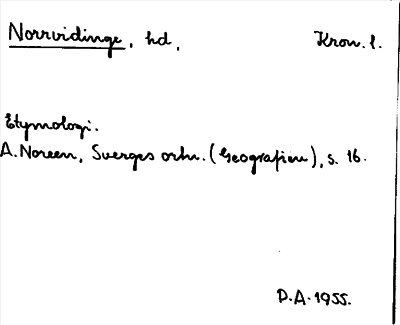 Norrvidinge, hd, Kron. l.
Etymologi.
A. Noreen, Sverges ortn. (Geografien), s. 16.
P.A. 1955.